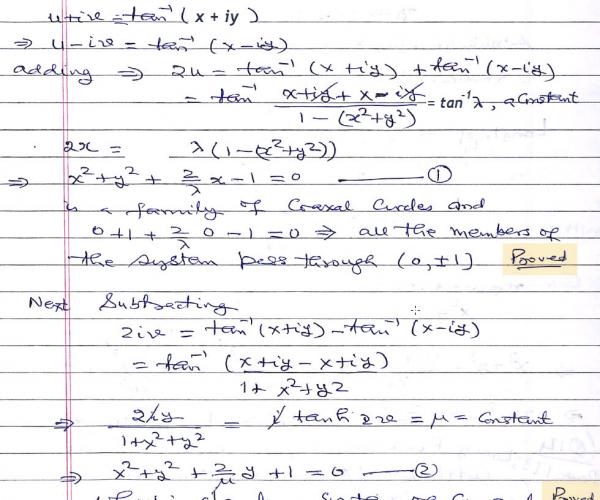 u+iv = tan⁻¹ ( x + iy )
⇒ u-iv = tan⁻¹ (x-iy)
adding ⇒ 2u = tan⁻¹ (x+iy) + tan⁻¹ (x-iy)
= tan⁻¹ x+iy + x-iy / 1-(x²+y²) = tan⁻¹λ, a Constant
2x = λ(1-(x²+y²))
⇒ x²+y² + 2/λ x-1=0 ①
is a family of Coaxal Circles and
0+1 + 2/λ 0-1=0 ⇒ all the members of
the system pass through (0,±1] Proved
Next Subtracting
2iv = tan⁻¹(x+iy) - tan⁻¹ (x-iy)
= tan⁻¹ (x+iy-x+iy) / 1+ x²+y2
⇒ 2iy / 1+x²+y² = i tanh 2v = μ = Constant
⇒ x²+y² + 2/μ y +1=0 ②
Proved